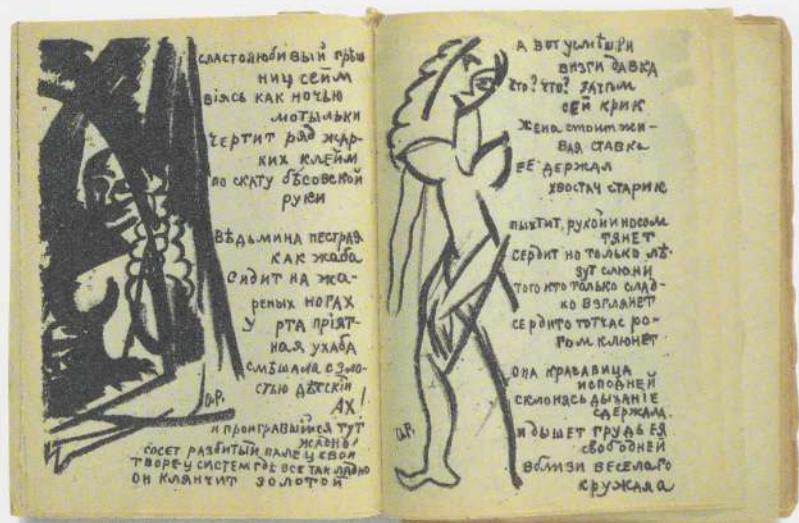 СЛАСТОЛЮБИВЫЙ ГРѢШ
НИЦ СЕЙМ
ВІЯСЬ КАК НОЧЬЮ
МОТЫЛЬКИ
ЧЕРТИТ РЯД ЖАР-
КИХ КЛЕЙМ
ПО СКАТУ БѢСОВСКОЙ
РУКИ
ВѢДЬМИНА ПЕСТРАЯ
КАК ЖАБА
СИДИТ НА ЖА-
РЕНЫХ НОГАХ
У РТА ПРІЯТ-
НАЯ УХАБА
СМѢШАЛА С ЗЛО-
СТЬЮ ДѢТСКІЙ
АХ!
И ПРОИГРАВШІЙСЯ ТУТ
ЖАДНО
СОСЕТ РАЗБИТЫЙ ПАЛЕЦ СВОЙ
ТВОРЕЦ СИСТЕМ ГДѢ ВСЕ ТАК ЛАДНО
ОН КЛЯНЧИТ ЗОЛОТОЙ
О.Р.
А ВОТ УСМѢШКИ
ВИЗГИ ДАВКА
ЧТО? ЧТО? ЗАЧѢМ
СЕЙ КРИК
ЖЕНА СТОИТ ЖИ-
ВАЯ СТАВКА
ЕЕ ДЕРЖАЛ
ХВОСТАЧ СТАРИК
ПЫХТИТ, РУКОЙ И НОСОМ
ТЯНЕТ
СЕРДИТ НО ТОЛЬКО ЛѢ-
ЗУТ СЛЮНИ
ТОГО КТО ТОЛЬКО СЛАД-
КО ВЗГЛЯНЕТ
СЕРДИТО ТОТЧАС РО-
ГОМ КЛЮНЕТ
ОНА КРАСАВИЦА
ИСПОДНЕЙ
СКЛОНЯСЬ ДЫХАНІЕ
СДЕРЖАЛА
И ДЫШЕТ ГРУДЬ ЕЯ
СВОБОДНЕЙ
ВБЛИЗИ ВЕСЕЛАГО
КРУЖАЛА
О.Р.